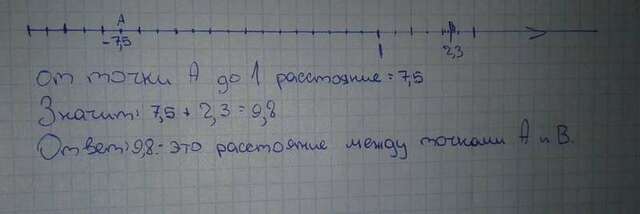 A B
-7,5 1 2,3
От точки A до 1 расстояние = 7,5
Значит: 7,5 + 2,3 = 9,8
Ответ: 9,8 - это расстояние между точками A и B.